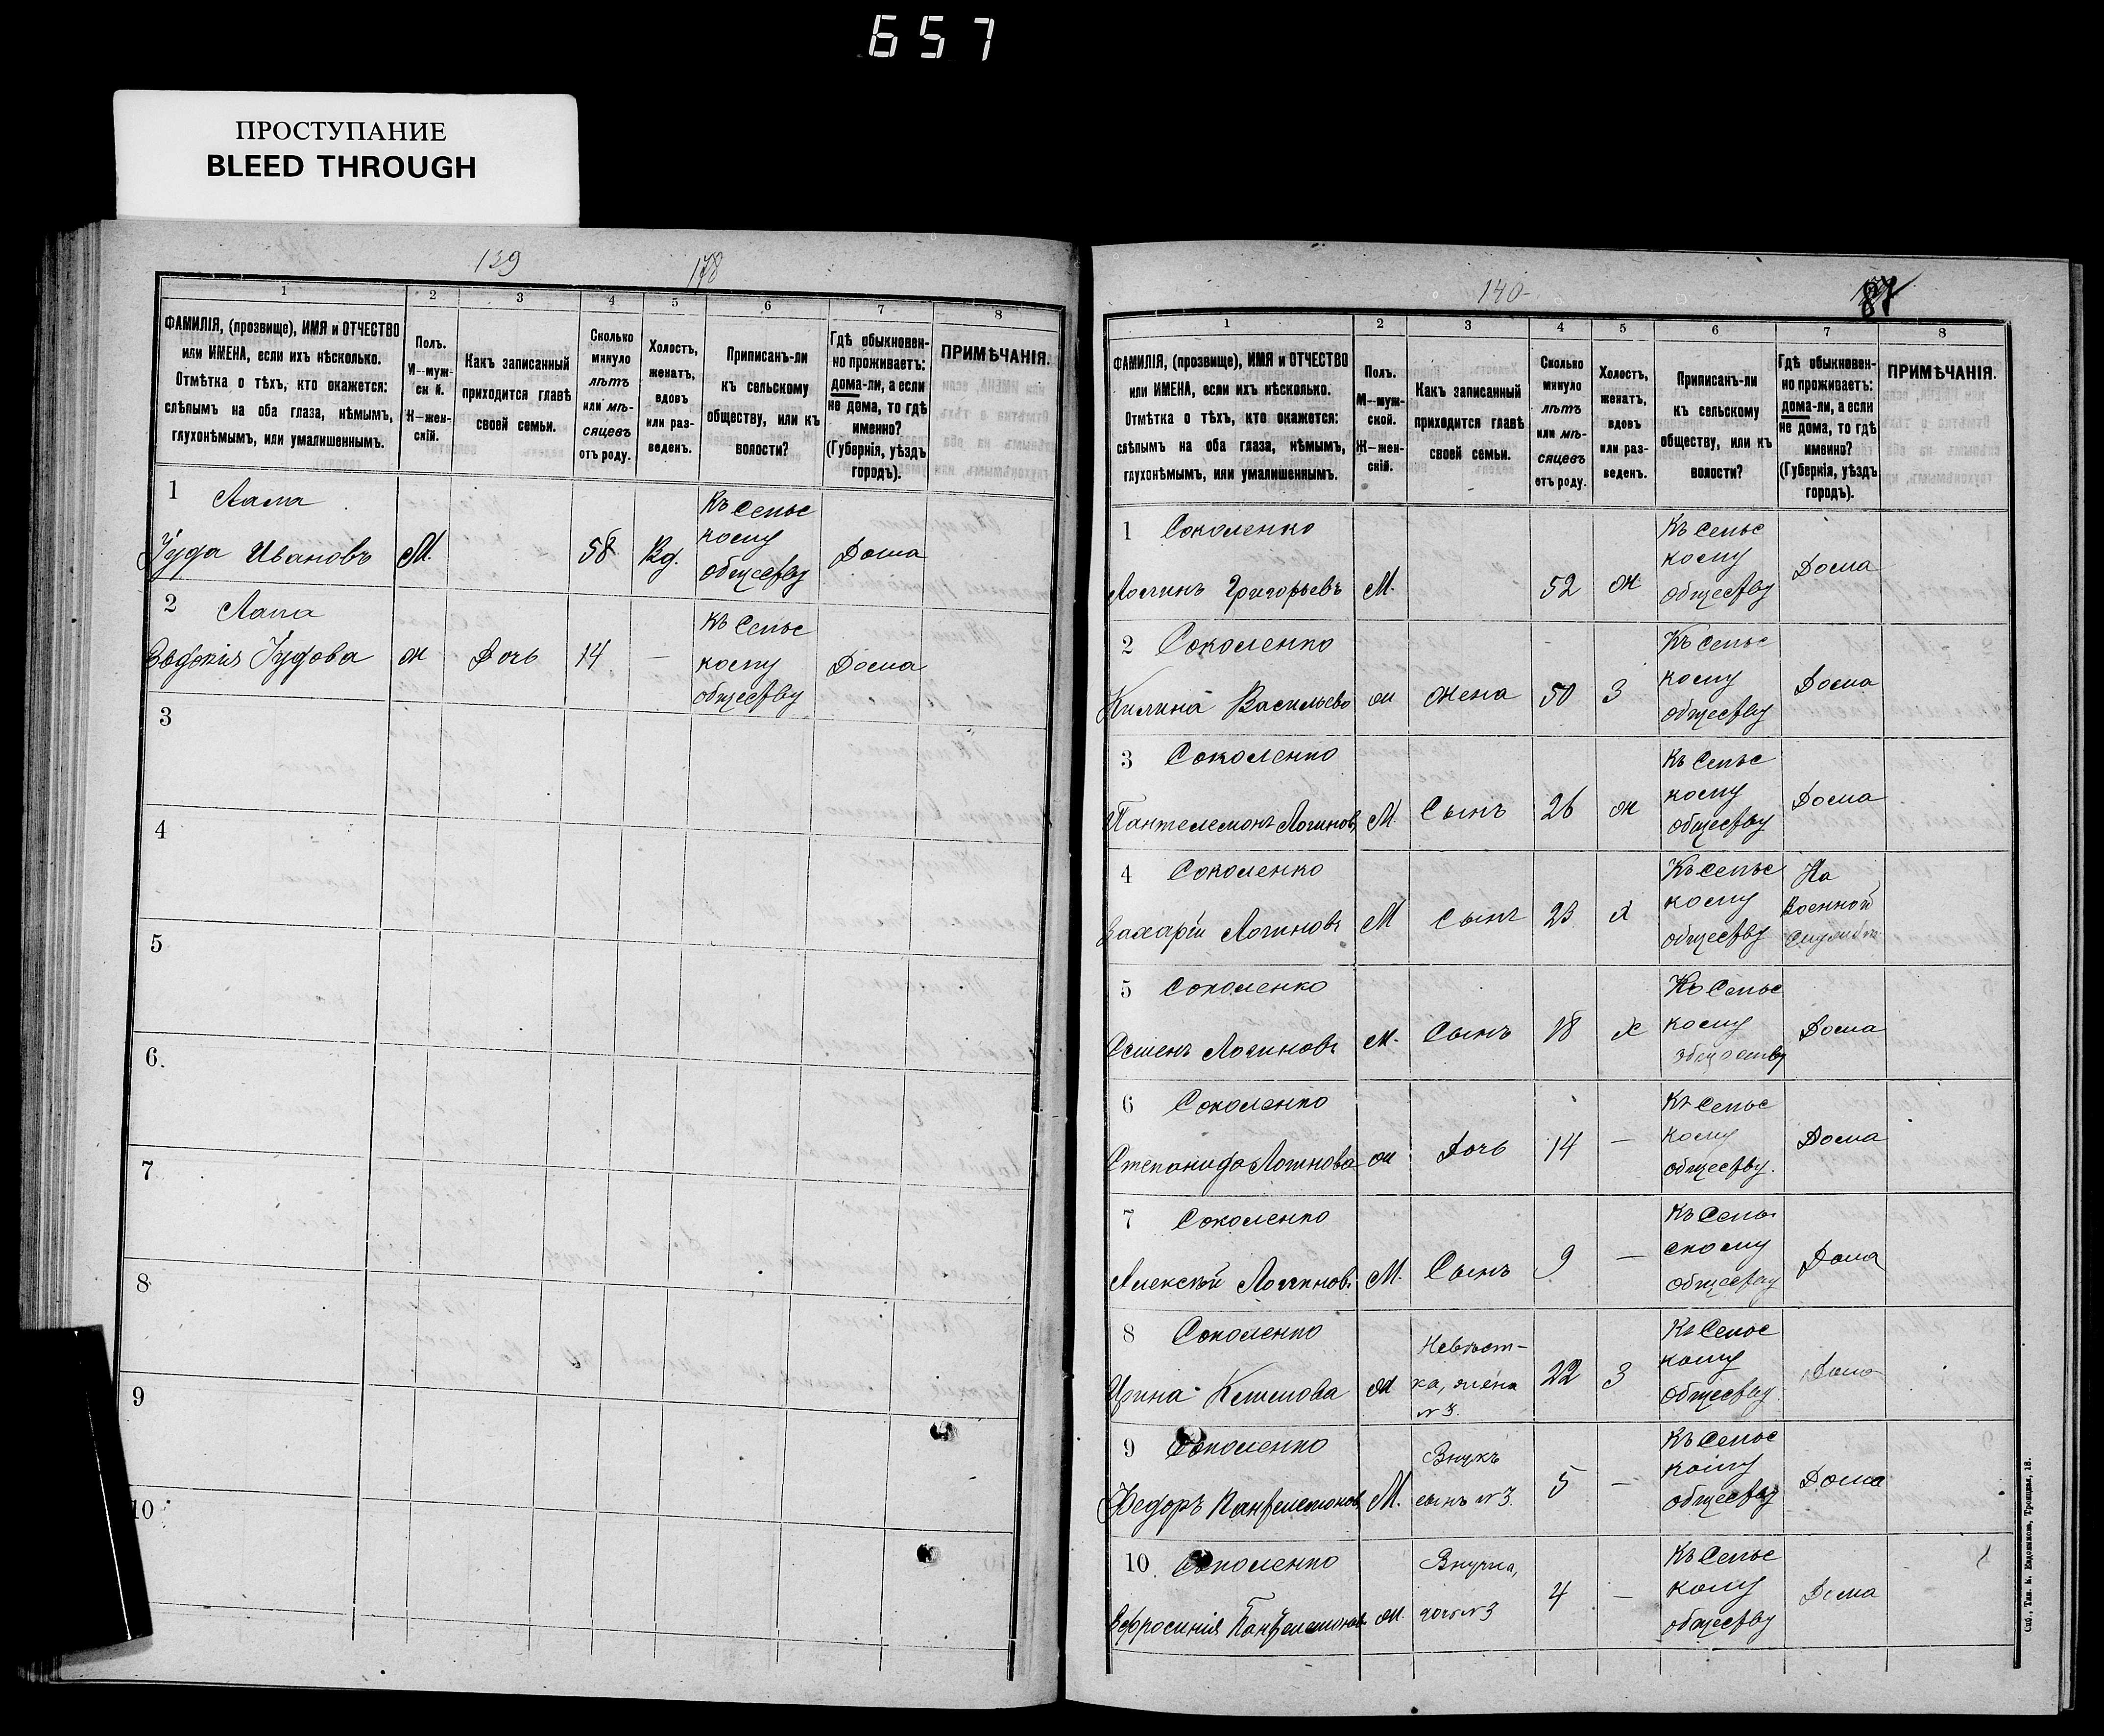 657
ПРОСТУПАНИЕ
BLEED THROUGH
139
178
1 2 3 4 5 6 7 8
ФАМИЛІЯ, (прозвище), ИМЯ и ОТЧЕСТВО
или ИМЕНА, если ихъ нѣсколько.
Отмѣтка о тѣхъ, кто окажется:
слѣпымъ на оба глаза, нѣмымъ,
глухонѣмымъ, или умалишеннымъ.
Полъ.
М--муж-
ск й.
Ж--жен-
скій.
Какъ записанный
приходится главѣ
своей семьи.
Сколько
минуло
лѣтъ
или мѣ-
сяцевъ
отъ роду.
Холостъ,
женатъ,
вдовъ
или раз-
веденъ.
Приписанъ-ли
къ сельскому
обществу, или къ
волости?
Гдѣ обыкновен-
но проживаетъ:
дома-ли, а если
не дома, то гдѣ
именно?
(Губернія, уѣздъ
городъ).
ПРИМѢЧАНІЯ.
1
Іуда Ивановъ М. 58 Вд. Къ Сельс
кому
обществу Дома
2
Евдокія Іудова ж Дочь 14 — Къ Сельс
кому
обществу Дома
3
4
5
6.
7
8
9
10
140
87
1 2 3 4 5 6 7 8
ФАМИЛІЯ, (прозвище), ИМЯ и ОТЧЕСТВО
или ИМЕНА, если ихъ нѣсколько.
Отмѣтка о тѣхъ, кто окажется:
слѣпымъ на оба глаза, нѣмымъ,
глухонѣмымъ, или умалишеннымъ.
Полъ.
М--муж-
ской.
Ж--жен-
скій.
Какъ записанный
приходится главѣ
своей семьи.
Сколько
минуло
лѣтъ
или мѣ-
сяцевъ
отъ роду.
Холостъ,
женатъ,
вдовъ
или раз-
веденъ.
Приписанъ-ли
къ сельскому
обществу, или къ
волости?
Гдѣ обыкновен-
но проживаетъ:
дома-ли, а если
не дома, то гдѣ
именно?
(Губернія, уѣздъ
городъ).
ПРИМѢЧАНІЯ.
1 Соколенко
Логинъ Григорьевъ М. 52 ж Къ Сельс
кому
обществу Дома
2 Соколенко
Килина Васильева ж жена 50 З Къ Сельс
кому
обществу Дома
3 Соколенко
Пантелемонъ Логиновъ М Сынъ 26 ж Къ Сельс
кому
обществу Дома
4 Соколенко
Захарій Логиновъ М Сынъ 23 х Къ Сельс
кому
обществу На
Военной
Службѣ
5 Соколенко
Семенъ Логиновъ М. Сынъ 18 х Къ Сельс
кому
обществу Дома
6 Соколенко
Степанида Логинова ж Дочь 14 — Къ Сельс
кому
обществу. Дома
7 Соколенко
Алексѣй Логиновъ М. Сынъ 9 — Къ Сель
скому
обществу Дома
8 Соколенко
Ирина ж Невѣст-
ка, жена
№ 3. 22 З Къ Сельс
кому
обществу Дома
9 Соколенко
Федоръ Пантелемонов М. Внукъ
сынъ № 3. 5 — Къ Сельс
кому
обществу Дома
10 Соколенко
Ефросинія Пантелемонов ж. Внучка,
дочь № 3 4 — Къ Сельс
кому
обществу Дома
Спб., Тип. А. Евдокимова, Троицкая, 18.